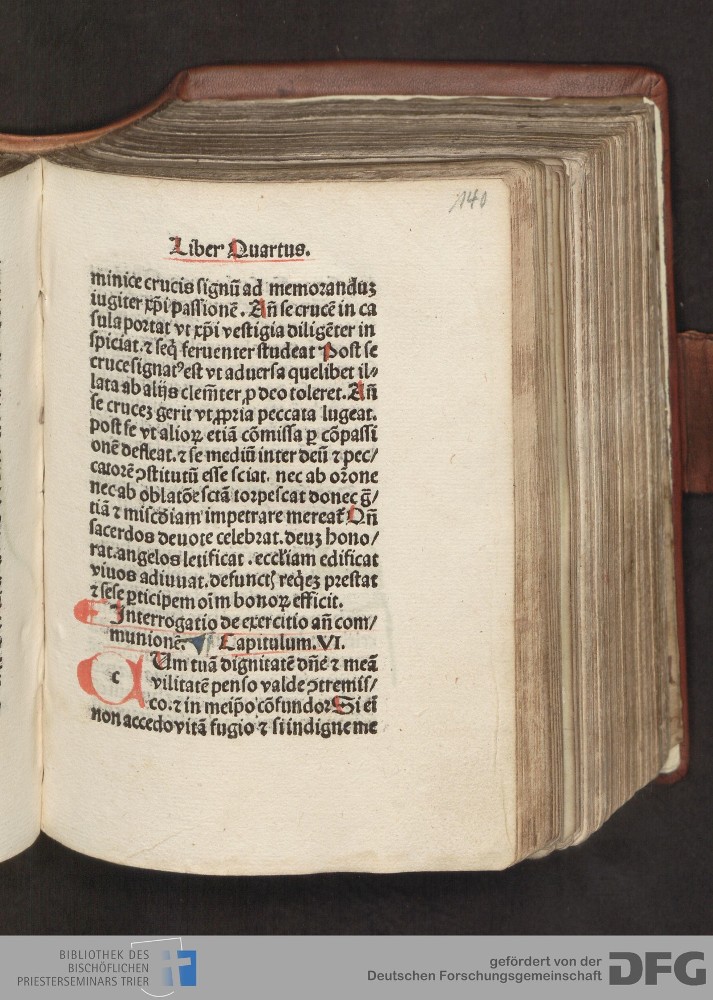 140
Liber Quartus.
minice crucis signũ ad memoranduz
iugiter xp̃i passionẽ. Añ se crucẽ in ca
sula portat vt xp̃i vestigia diligẽter in
spiciat. ⁊ seq̃ feruenter studeat Post se
cruce signatꝰ est vt aduersa quelibet il⸗
lata ab alijs clemẽter ꝓ deo toleret. Añ
se crucez gerit vt ꝓpria peccata lugeat.
post se vt alioꝝ etiã cõmissa ꝑ cõpassi
onẽ defleat. ⁊ se mediũ inter deũ ⁊ pec/
catorẽ ꝯstitutũ esse sciat. nec ab or̃one
nec ab oblatõe sctã torpescat donec g̃/
tiã ⁊ miscd̃iam impetrare mereat᷑ Qñ
sacerdos deuote celebrat. deuz hono/
rat. angelos letificat. eccl̃iam edificat
viuos adiuuat. defunctꝭ req̃ez prestat
⁊ sese ꝑticipem oĩm bonoꝝ efficit.
Interrogatio de exercitio añ com/
munionẽ. Capitulum. VI.
c Um tuã dignitatẽ dñe ⁊ meã
vilitatẽ penso valde ꝯtremis/
co. ⁊ in meip̃o cõfundor Si eĩ
non accedo vitã fugio ⁊ si indigne me
BIBLIOTHEK DES
BISCHÖFLICHEN
PRIESTERSEMINARS TRIER
gefördert von der
Deutschen Forschungsgemeinschaft
DFG